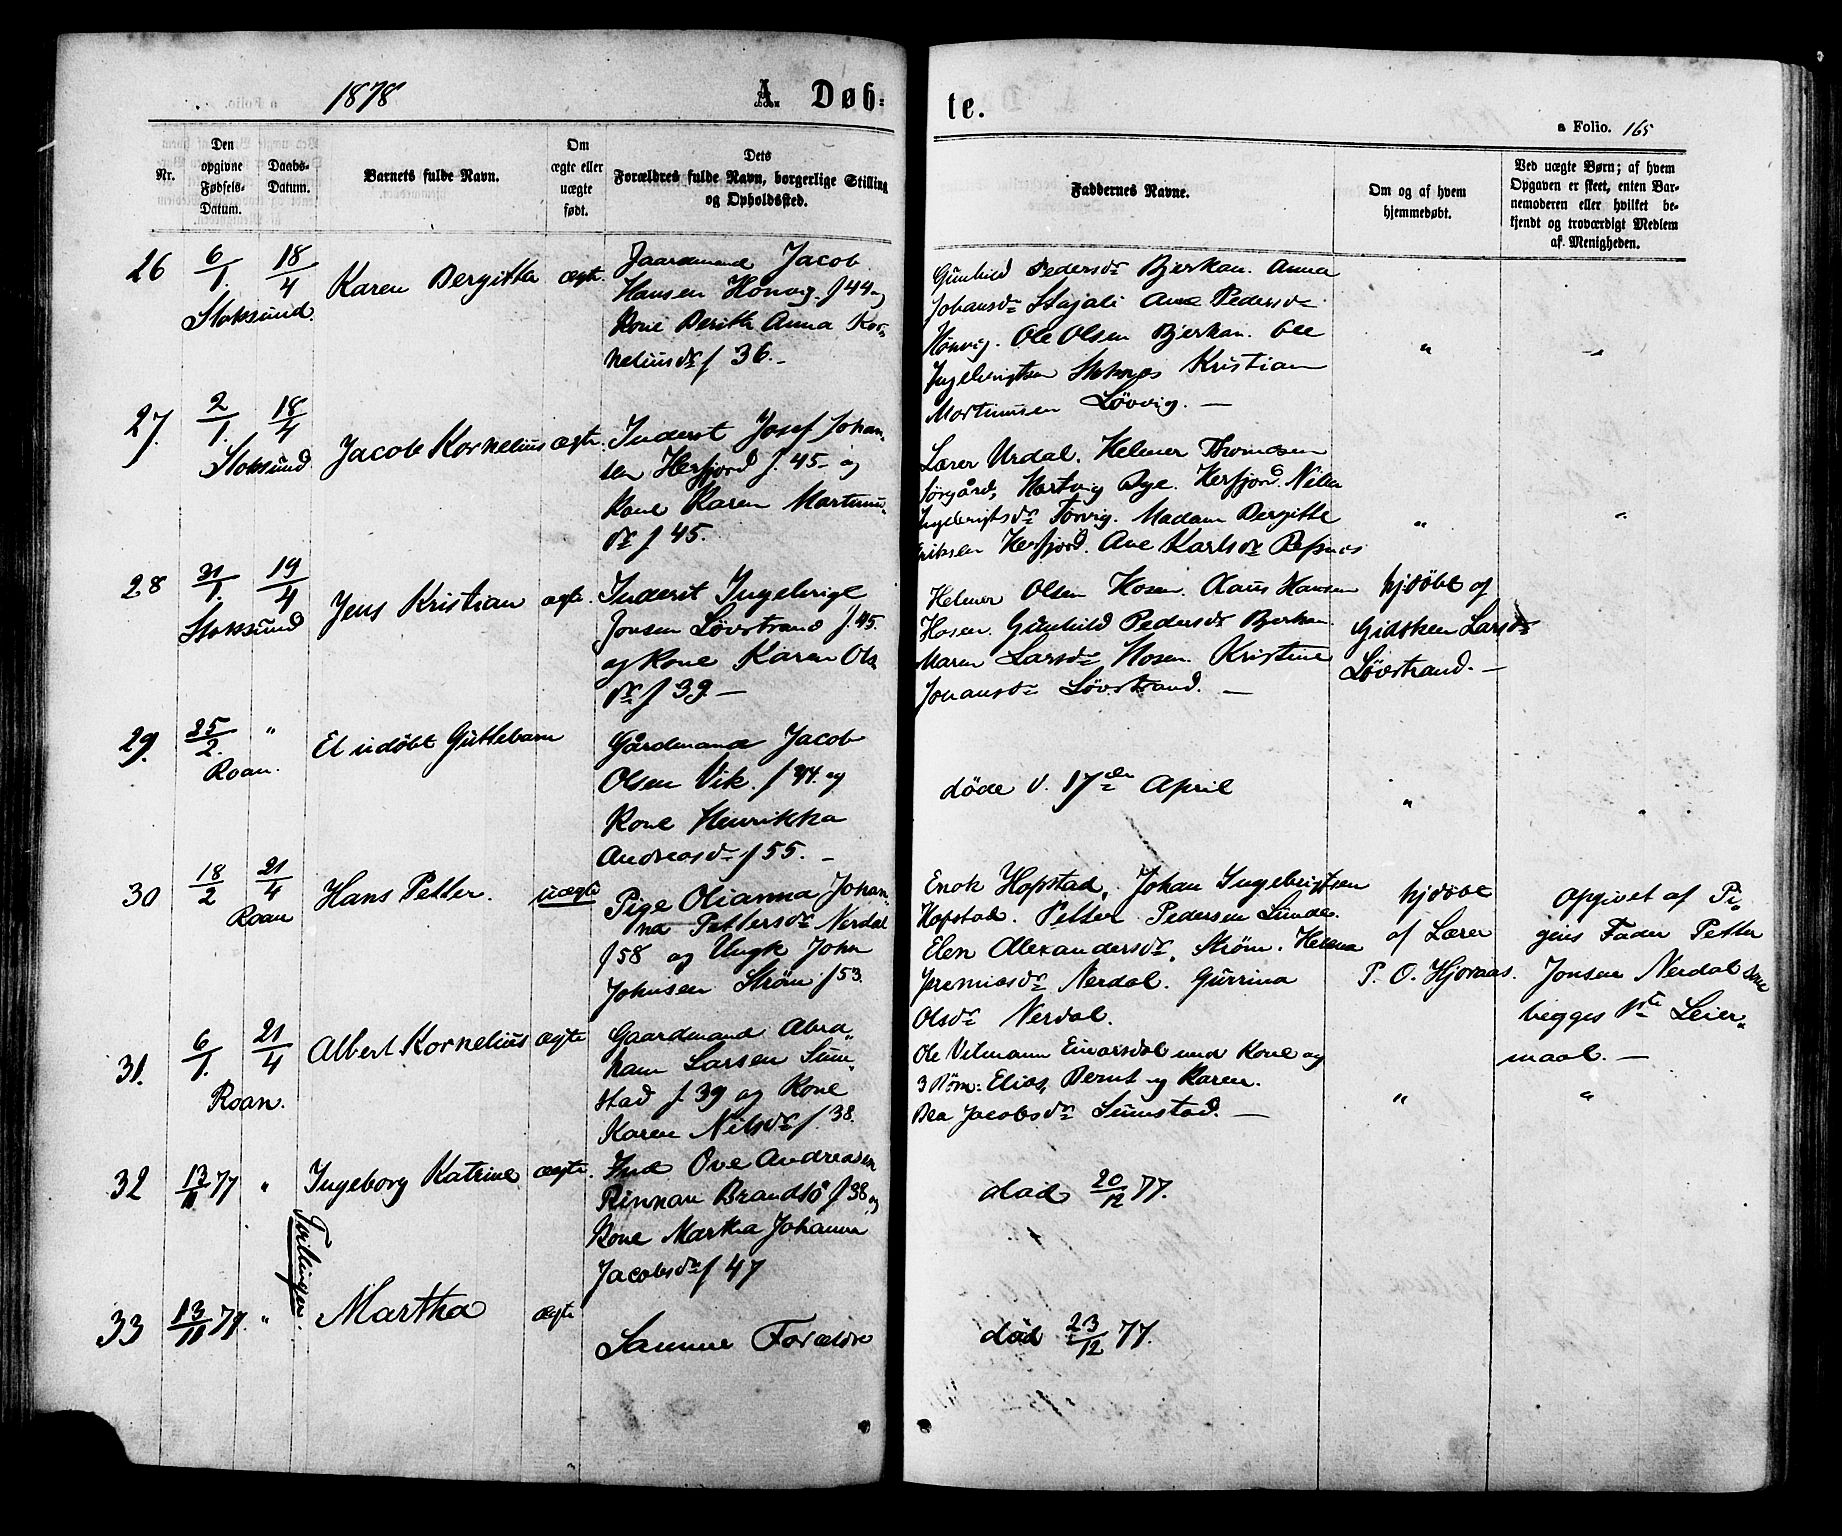 1878
A Døb=
te.
a Folio. 165
Nr.
Den opgivne Fødsels-Datum.
Daabs-Datum.
Barnets fulde Navn.
Om ægte eller uægte født.
Dets Forældres fulde Navn, borgerlige Stilling og Opholdssted.
Faddernes Navne.
Om og af hvem hjemmedøbt.
Ved uægte Børn; af hvem Opgaven er skeet, enten Barnemoderen eller hvilket bekjendt og troværdigt Medlem af Menigheden.
26
6/1. 18/4
Stoksund.
Karen Bergitta
ægte.
Gaardmand Jacob
Hansen Hønvig. f 44 og
Kone Berith Anna Kor=
neliusdr f 36. -
Gunhild Pedersdr Bjerkan. Anna
Johansdr Ane Pedersdr
Hønvig. Ole Olsen Bjerkan. Ole
Ingebrigtsen Stoknes Kristian
Martinusen Løvvig. -
"
27.
2/1. 18/4
Stoksund
Jacob Kornelius
ægte.
Inderst Josef Johan=
sen Herfjord f. 45 - og
Kone Karen Martinus
dr f 45.
Lærer Urdal. Helmer Thomdsen
Sørgård, Hartvig Bye. Herfjord. Nilla
Ingebrigtsdr Tørvig. Madam Bergitte
Eriksen Herfjord. Ane Karlsdr Refsnes
"
"
28
31/1. 19/4
Stoksund
Jens Kristian
ægte.
Inderst Ingebrigt
Jonsen Løvstrand f 45.
og Kone Karen Ols
dr f 39 -
Helmer Olsen Hosen. Claus Hansen
Hosen. Gunhild Pedersdr Bjerkan.
Maren Larsdr Hosen. Kristine
Johansdr Løvstrand. -
hjdøbt af
Gidsken Larsdr
Løvstrand. -
29.
25/2. "
Roan.
Et udøbt Guttebarn
Gårdmand Jacob
Olsen Vik. f 44. og
Kone Henrikka
Andreasdr f 55. -
døde d. 17de April
"
"
30
18/2 21/4
Roan
Hans Petter.
uægte
Pige Olianna Johan=
na Pettersdr Nerdal
f 58 og Ungk John
Johnsen Strøm f 53.
Enok Hopstad, Johan Ingebrigtsen
Hopstad. Petter Pedersen Sunde.
Elen Alexandersdr, Strøm. Helena
Jeremiasdr Nerdal. Gurrina
Olsdr Nerdal.
hjdøbt
af Lærer
P. O. Hjoraas.
Opgivet af Pi=
gens Fader Petter
Jonsen Nerdal som
begges 1ste Leier=
maal. -
31.
6/1. 21/4
Roan.
Albert Kornelius
ægte
Gaardmand Abra=
ham Larsen Sum=
stad f 39 og Kone
Karen Nilsdr f. 38.
Ole Vilmann Einarsdal med Kone og
3 Børn: Elias, Bernt og Karen.
Bea Jacobsdr Sumstad. -
"
"
32
13/11 77 "
Ingeborg Katrine
ægte.
Ind Ove Andreasen
Rinnan Brandsø f 38 og
Kone Martha Johanna
Jacobsdr f 47
død 20/12 77.
Tvillinger.
33
13/11 77. "
Martha
ægte
Samme Forældre
død 23/12 77.